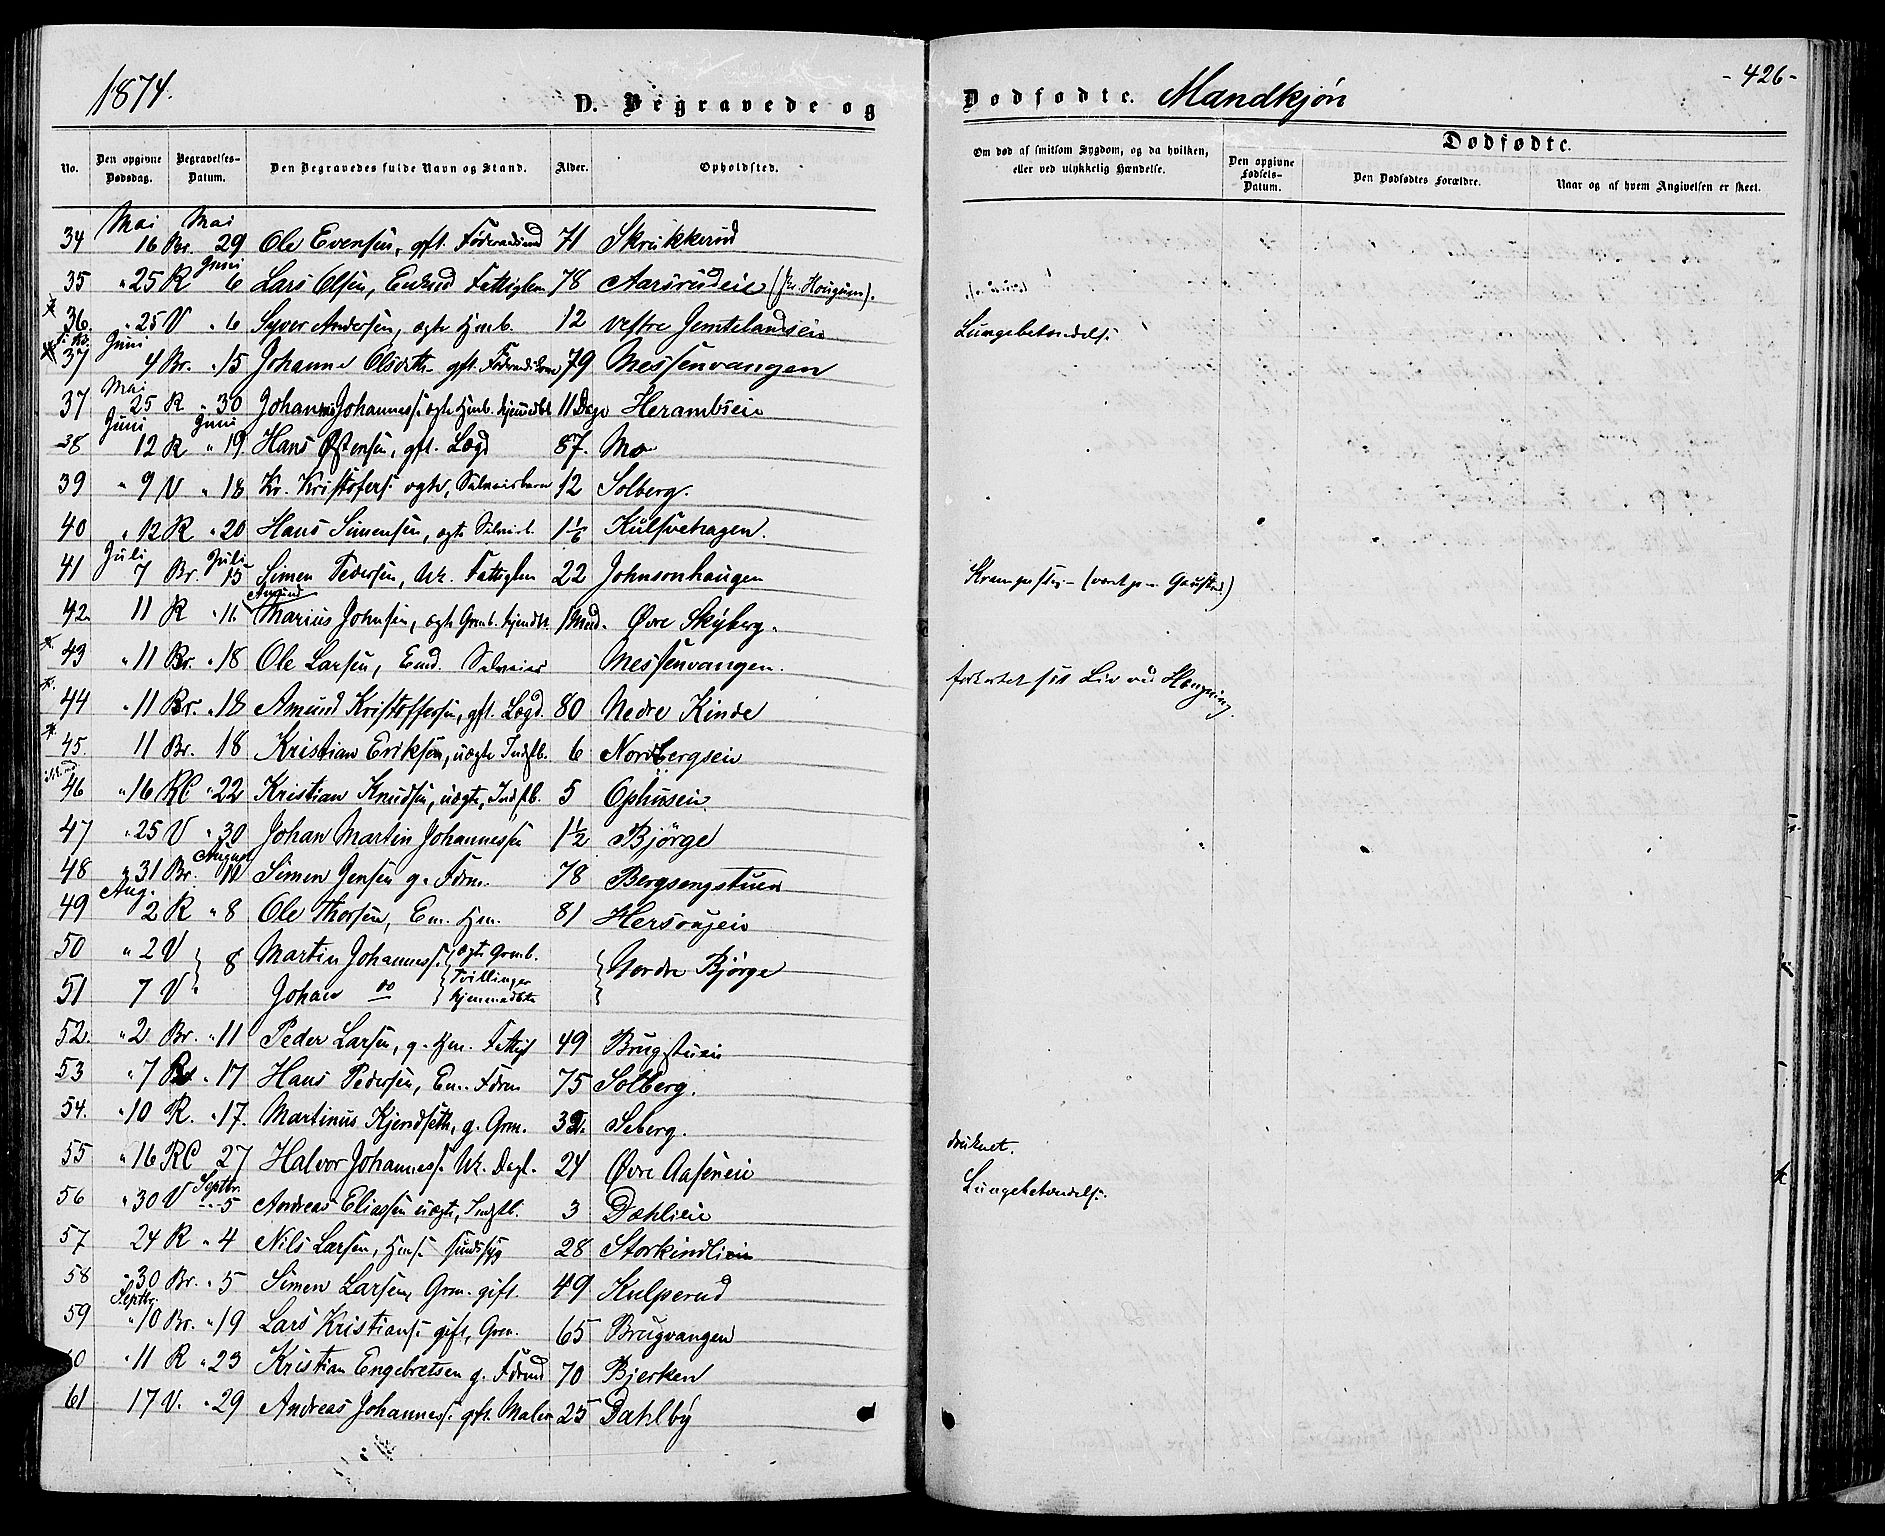 1874.
D. Begravede og
Dødfødte. Mandkjøn
-426-
No. Den opgivne Dødsdag. Begravelses-Datum. Den Begravedes fulde Navn og Stand. Alder. Opholdsted.
Om død af smitsom Sygdom, og da hvilken, eller ved ulykkelig Hændelse. Den opgivne Fødsels-Datum. Dødfødte. Den Dødfødtes Forældre. Naar og af hvem Angivelsen er skeet.
Mai Mai
34 16 Br. 29 Ole Evensen, gft. 71 Skrukkerud
Juni
35 " 25 R 6 Lars Olsen, Enkmd Fattiglem 78 Aarsrudeie (fr. Hougum).
36. " 25 V " 6 Syver Andersen, ægte Hmb. 12 vestre Jemtelandseie Lungebetændelse
Juni
37 4 Br. " 15 Johanne Olsdtr gft. 79 Messenvangen
Mai
37 25 R " 30 Johannes Johanness. ægte Hmb. hjemmedbt 11 Dage Herambseie
Juni Juni
38 12 R " 19 Hans Østensen, gft. Lægd 87. Mo
39 " 9 V " 18 Kr. Kristofers. ægte, Selveierbarn 12 Solberg.
40 " 12 R " 20 Hans Simensen, ægte Selveierb. 1 1/6 Kulsvehagen.
Juli Juli
41 7 Br. 15 Simen Pedersen, Uk. Fattiglem 22 Johnsonhaugen Krampeslag
Amund
42 11 R " 11 Marius Johnsen, ægte Grmb. hjemdbt. 1 Mnd. Øvre Skyberg.
43 " 11 Br. " 18 Ole Larsen, Enmd. Selveier Messenvangen. forkortet sit Liv ved Hængning.
44 " 11 Br. " 18 Amund Kristoffersen, gft. Lægd. 80 Nedre Kinde
45. 11 Br. 18 Kristian Eriksen, uægte Indstb. 6 Nordbergseie
46 " 16 RC " 22 Kristian Knudsen, uægte, Indstb. 5 Ophuseie
47 " 25 V " 30 Johan Martin Johannessen 1 1/2 Bjørge
August
48 " 31 Br. 11 Simen Jensen g. Fdrm. 78 Bergsengstuen
Aug.
49 2 R " 8 Ole Thorsen, Em. Hm. 81 Hersougeie
50 " 2 V 8 Martin Johanness. ægte Grmb. Nordre Bjørge
51 7 V " Johan do Tvillinger hjemmedbte
52. " 2 Br. " 11 Peder Larsen, g. Hm. Fattigl 49 Brugstuen
53 " 7 " 17 Hans Pedersen, Em. Fdrm 75 Solberg.
54. " 10 R. " 17. Martinus Kjendseth, g. Grm. Seberg.
55 " 16 RC 27 Halvor Johanness. Uk. Dagl. 24 Øvre Aaseneie druknet.
Septbr.
56 " 30 V " 5 Andreas Eliassen uægte, Indstb. 3 Dæhlieie Lungebetændelse
57 24 R " 4 Nils Larsen, Hms. sindssyg 28 Storkindlien
58 " 30 Br. " 5 Simen Larsen, Grm. gift. 49 Kulperud
Septbr.
59 " 10 Br. " 19 Lars Kristians. gift, Grm. 65 Brugvangen
60 " 11 R " 23 Kristian Engebretsen g. Fdrmd 70 Bjerken
61 17 V. " 29 Andreas Johanness. gft. Maler 25 Dahlby